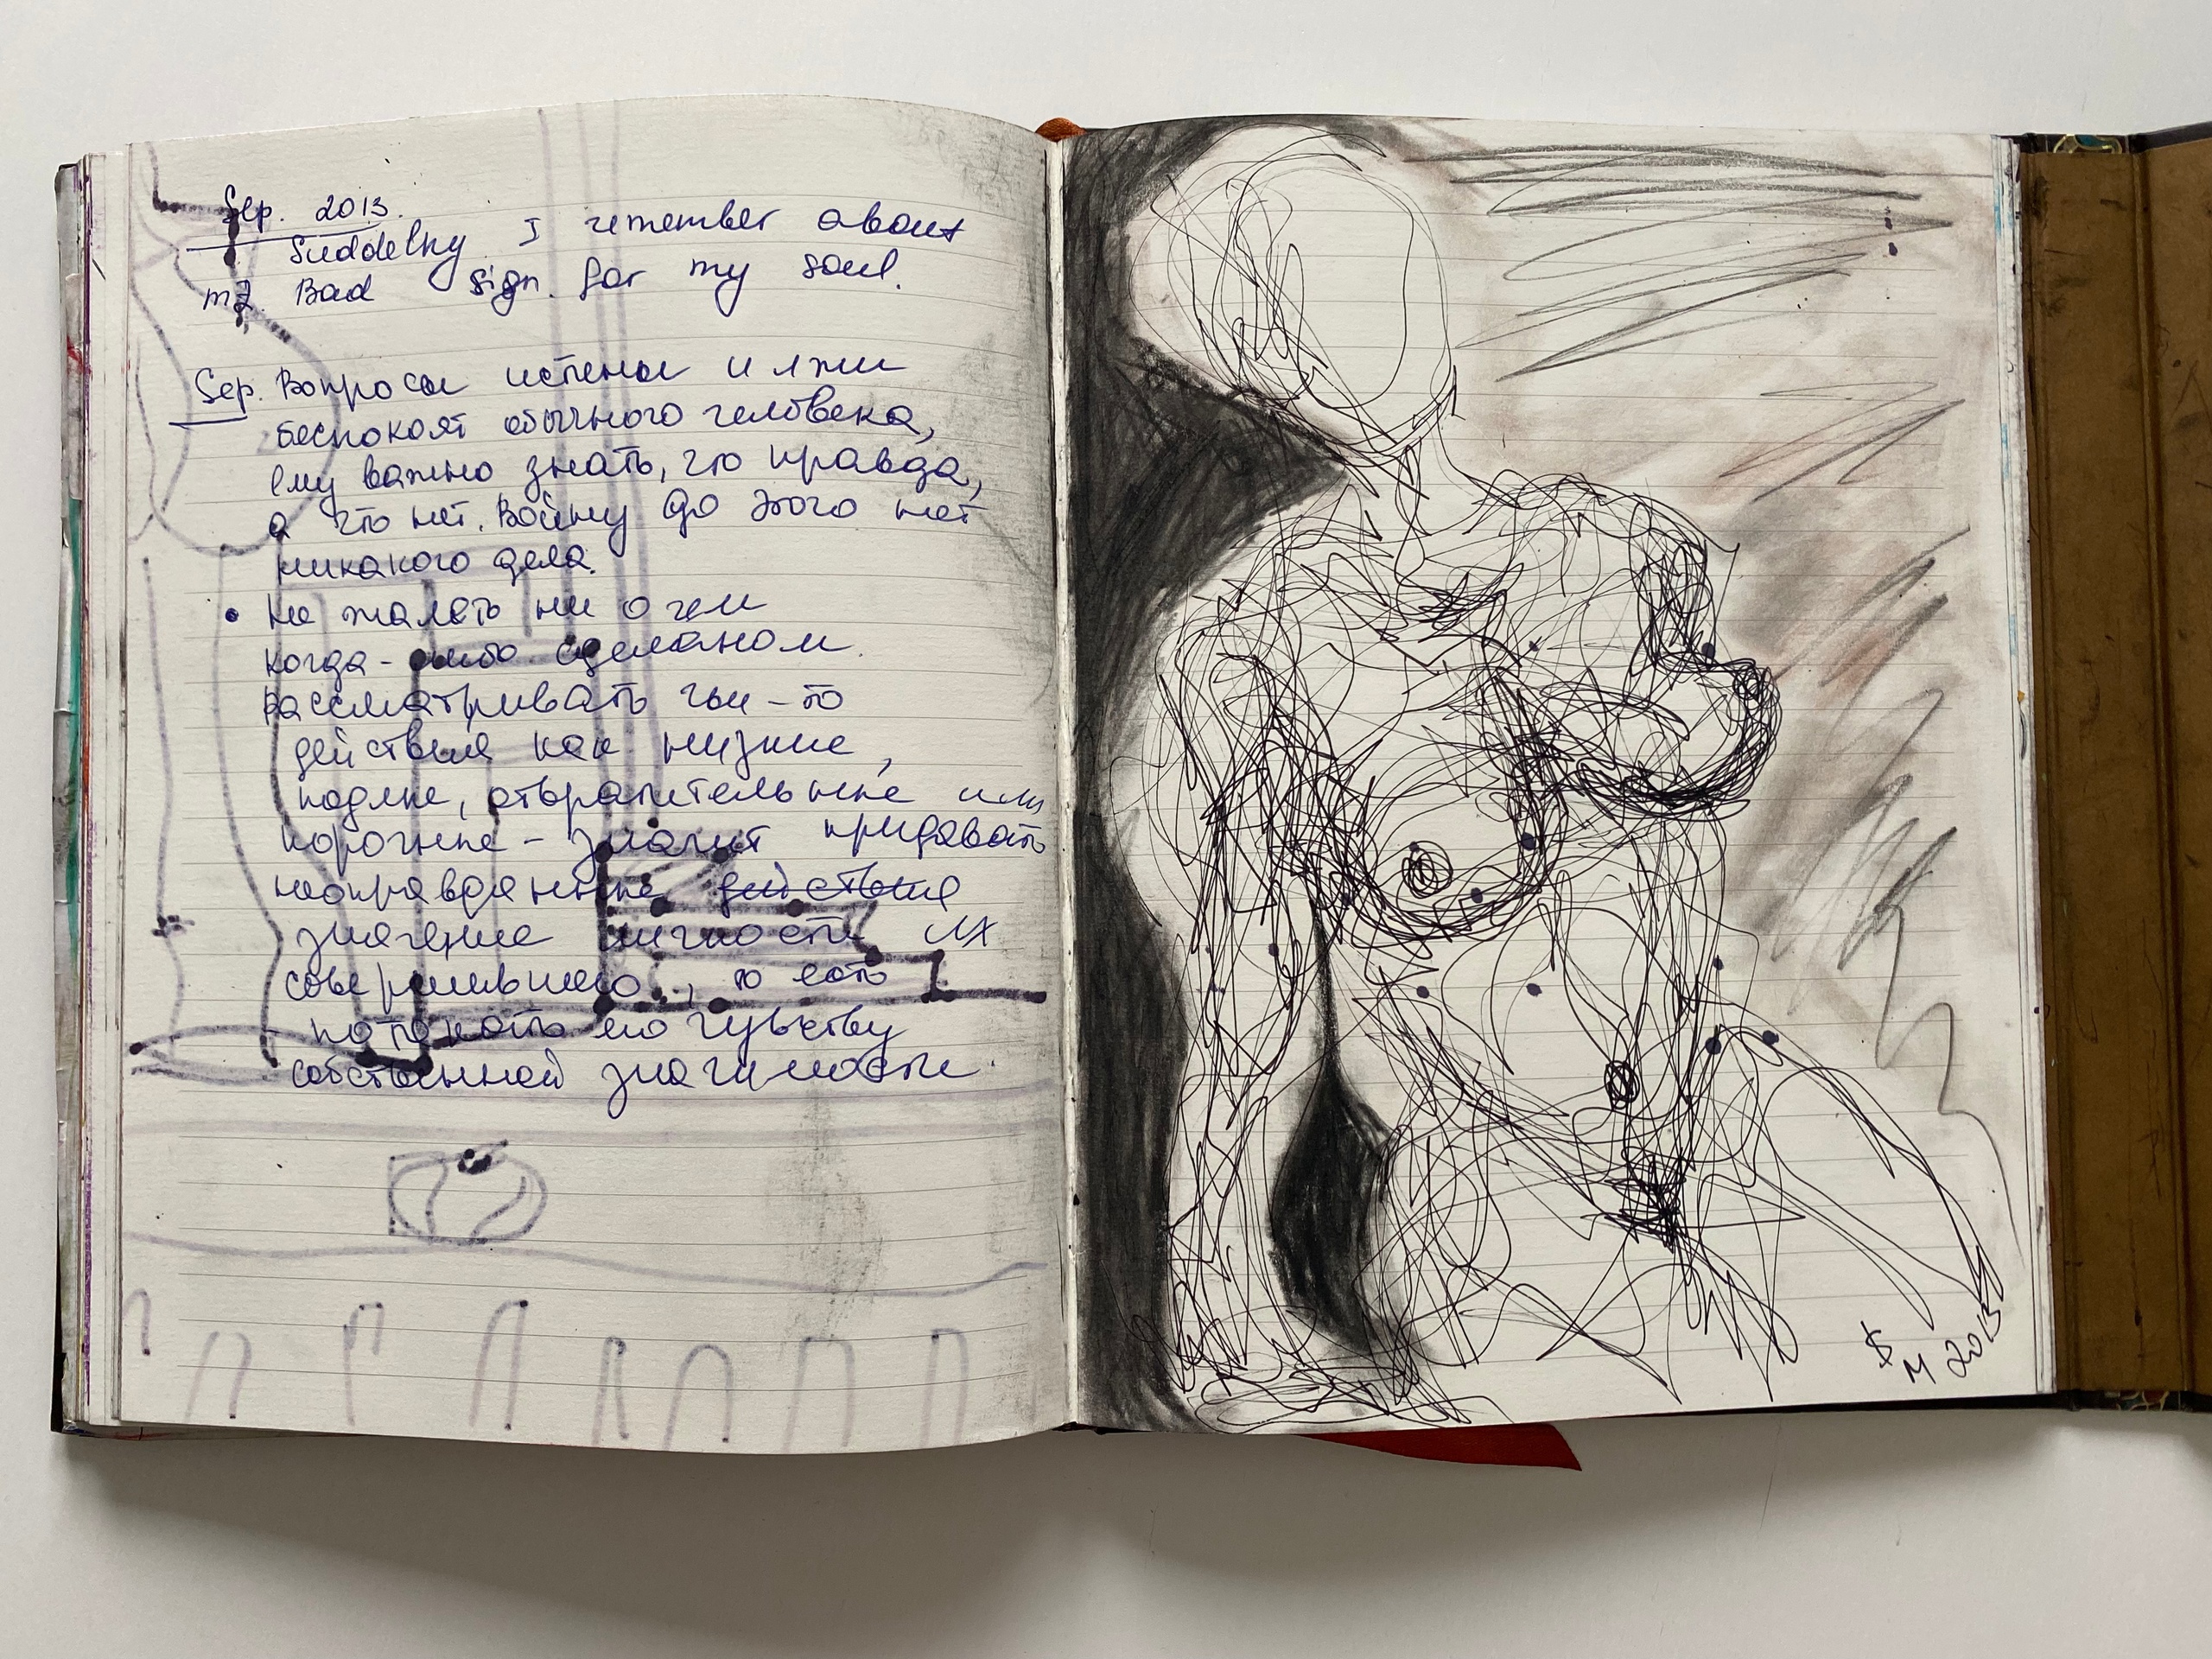 Sep. 2013.
Suddelny I remember about
me. Bad sign. for my soul.
Sep. Вопросы истены и лжи
беспокоят обычного человека,
ему важно знать, что правда,
а что нет. Войну до этого нет
никакого дела.
• Не жалеть ни о чем
когда-либо сделаном.
Рассматривать чьи-то
действия как низкие,
подлые, отвратительные или
порочные - значит придавать
неоправданные действия
значение личности их
совершившего, то есть
- потакать его чувству
собственной значимости.
M 2013